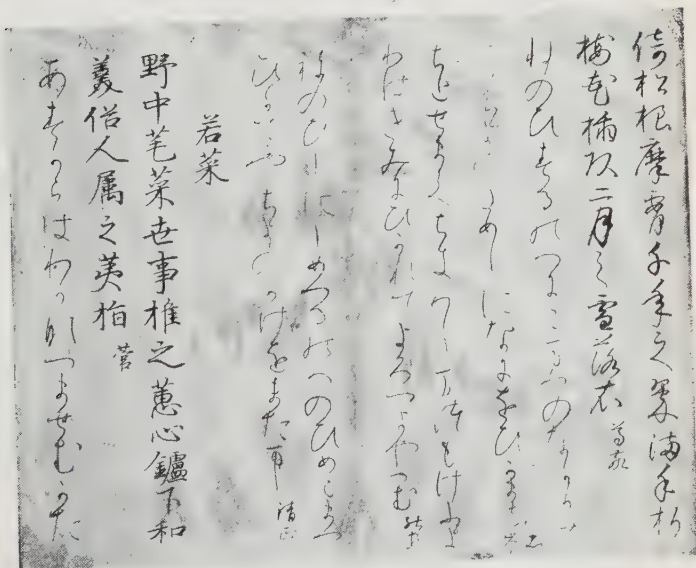 倚松根摩腰千年之翠満手折
梅花挿頭二月之雪落衣 尊敬
ねのひするのへにこまつのなかりせは
ためしになにをひかまし 忠
ちとせまてかきれるまつもけふよ
りはきみにひかれてよろつよやへむ 能宣
ねのひしにしめつるのへのひめこまつ
ひかてやちよのかけをまたまし 清正
若菜
野中芼菜世事推之蕙心鑪下和
羹俗人属之荑指 菅
あすからはわかなつませむかた